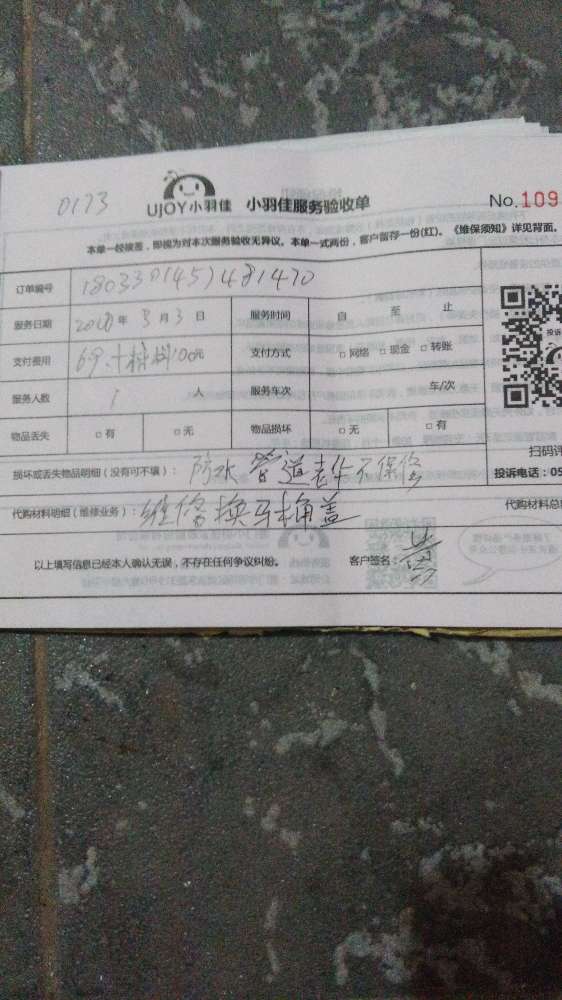 0173
UJOY小羽佳 小羽佳服务验收单 No.109
本单一经填签,即视为对本次服务验收无异议。本单一式两份,客户留存一份(红)。《维保须知》详见背面。
订单编号
服务日期 2018年3月3日 服务时间 自 至 止
支付费用 69.+材料100元 支付方式 □网络 □现金 □转账
服务人数 1 人 服务车次 车/次
物品丢失 □有 □无 物品损坏 □无 □有
扫码评
损坏或丢失物品明细(没有可不填): 防水管道老化不保修
投诉电话:05
代购材料明细(维修业务): 维修换马桶盖 代购材料总
以上填写信息已经本人确认无误,不存在任何争议纠纷。 客户签名: